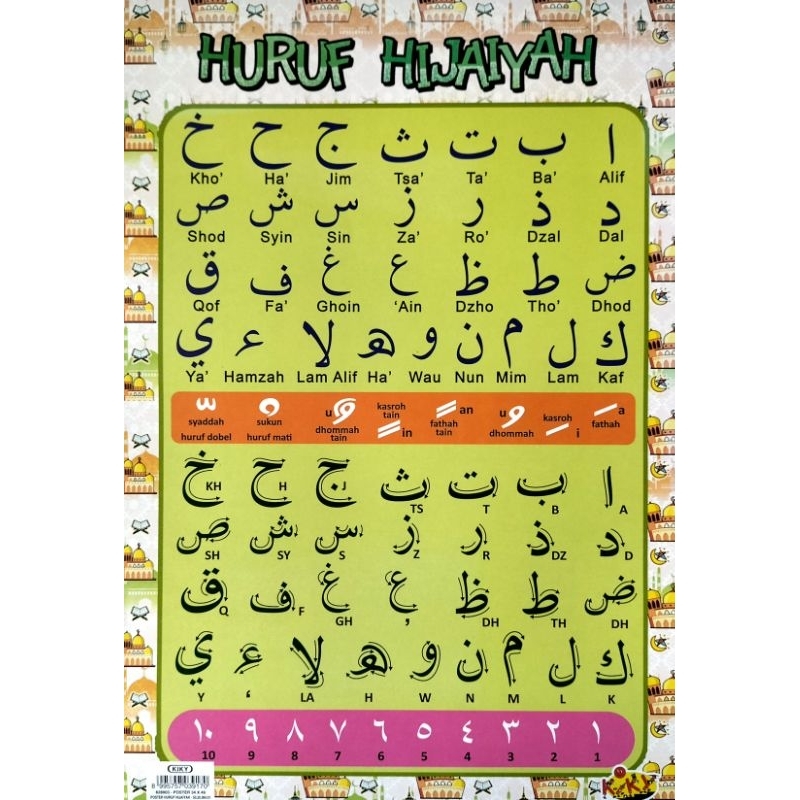 HURUF HIJAIYAH
ا ب ت ث ج ح خ
Kho' Ha' Jim Tsa' Ta' Ba' Alif
د ذ ر ز س ش ص
Shod Syin Sin Za' Ro' Dzal Dal
ض ط ظ ع غ ف ق
Qof Fa' Ghoin 'Ain Dzho Tho' Dhod
ك ل م ن و ه لا ء ي
Ya' Hamzah Lam Alif Ha' Wau Nun Mim Lam Kaf
syaddah huruf dobel
sukun huruf mati
u dhommah tain
kasroh tain in
an fathah tain
u dhommah
kasroh i
a fathah
ا ب ت ث ج ح خ
KH H J TS T B A
د ذ ر ز س ش ص
SH SY S Z R DZ D
ض ط ظ ع غ ف ق
Q F GH ' DH TH DH
ك ل م ن و ه لا ء ي
Y ' LA H W N M L K
١ ٢ ٣ ٤ ٥ ٦ ٧ ٨ ٩ ١٠
10 9 8 7 6 5 4 3 2 1
KIKY
8 995757 039170
KiKY